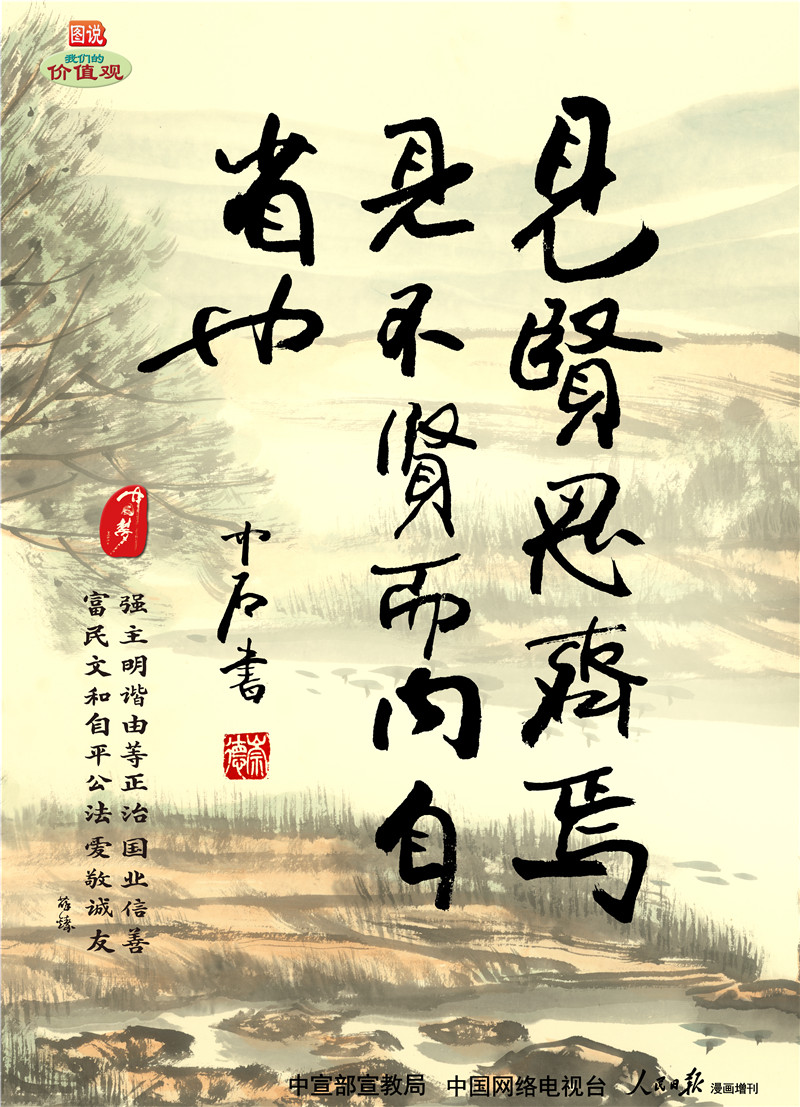 图说
我们的
价值观
见贤思齐焉
见不贤而内自
省也
中石书
崇德
中国梦
富强
民主
文明
和谐
自由
平等
公正
法治
爱国
敬业
诚信
友善
中宣部宣教局 中国网络电视台 人民日报 漫画增刊